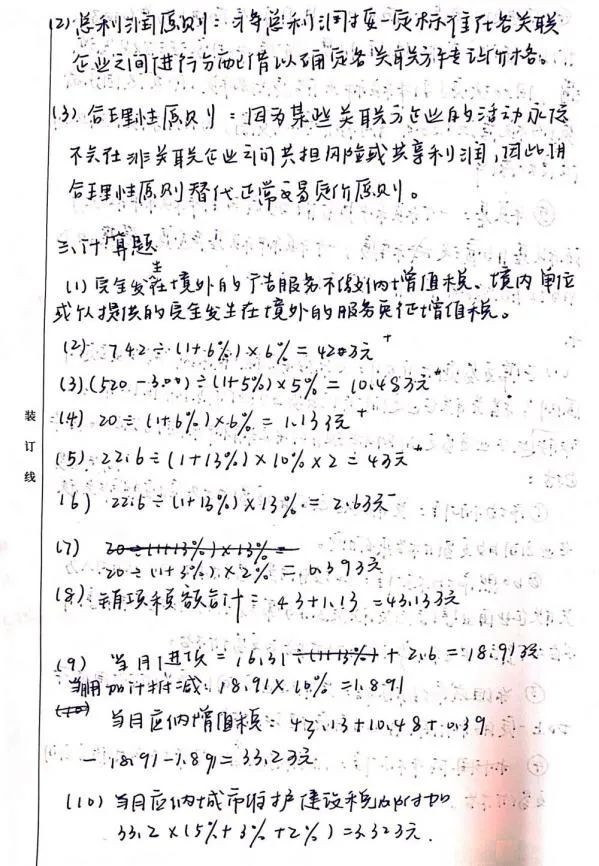 (2) 总利润原则：将总利润按一定标准在各关联
企业之间进行分配借以确定各关联方转让价格。
(3) 合理性原则：因为某些关联方企业的活动永远
不会在非关联企业之间共担风险或共享利润，因此用
合理性原则替代正常交易定价原则。
三、计算题
(1) 完全发生在境外的广告服务不缴纳增值税。境内单位
或个人提供的完全发生在境外的服务免征增值税。
(2) 742÷(1+6%)×6%=42万元
(3) (520-300)÷(1+5%)×5%=10.48万元
(4) 20÷(1+6%)×6%=1.13万元
(5) 22.6÷(1+13%)×10%×2=4万元
(6) 22.6÷(1+13%)×13%=2.6万元
(7) 20÷(1+13%)×13%=
20÷(1+3%)×2%=0.39万元
(8) 销项税额合计=43+1.13=43.13万元
(9) 当月进项=16.31÷(1+13%)+2.6=18.91万元
当期加计抵减:18.91×10%=1.891
(10) 当月应纳增值税=43.13+10.48+0.39
-18.91-1.89=33.2万元
(10) 当月应纳城市维护建设税及附加
33.2×(5%+3%+2%)=3.32万元.
装
订
线